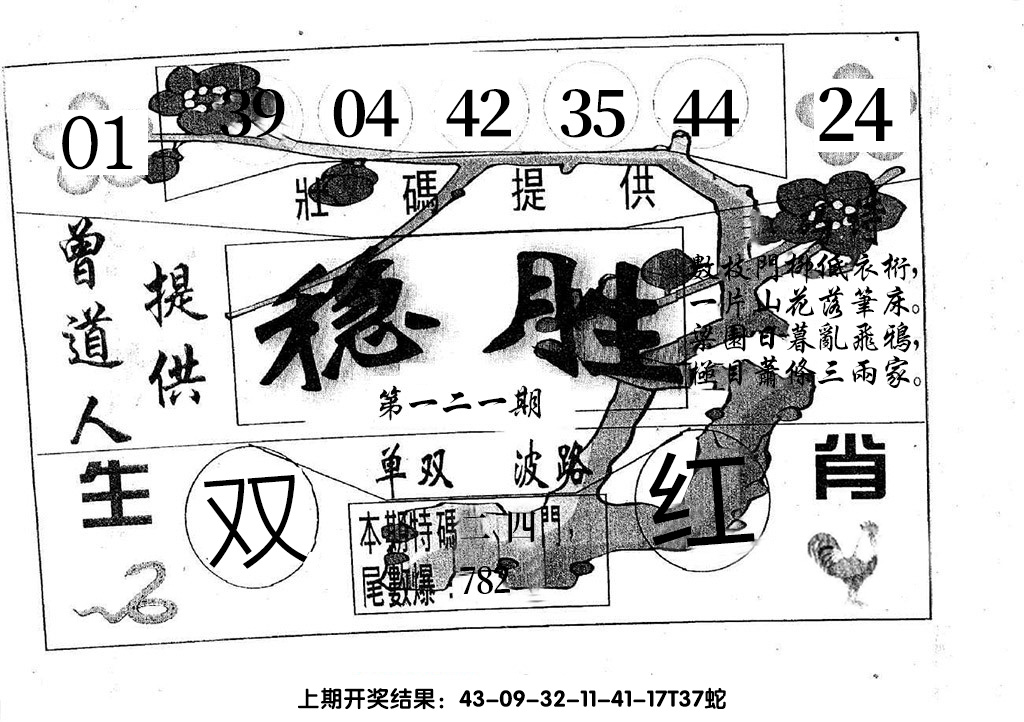 01 39 04 42 35 44 24
壯碼提供
曾道人
提供
穩胜
第一二一期
數枝門柳低衣桁，
一片山花落筆床。
梁園日暮亂飛鴉，
極目蕭條三兩家。
单双 波路
生
双
红
肖
本期特碼二、四門，
尾數爆：782
上期开奖结果：43-09-32-11-41-17T37蛇